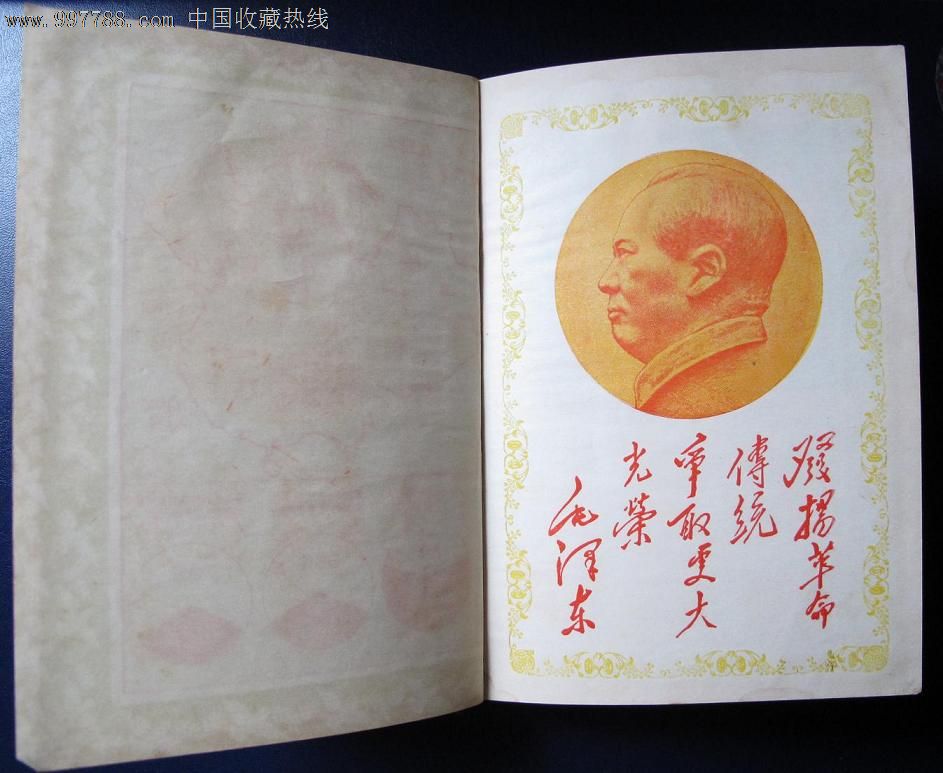 www.997788.com 中国收藏热线
發揚革命
傳統
爭取更大
光榮
毛澤东